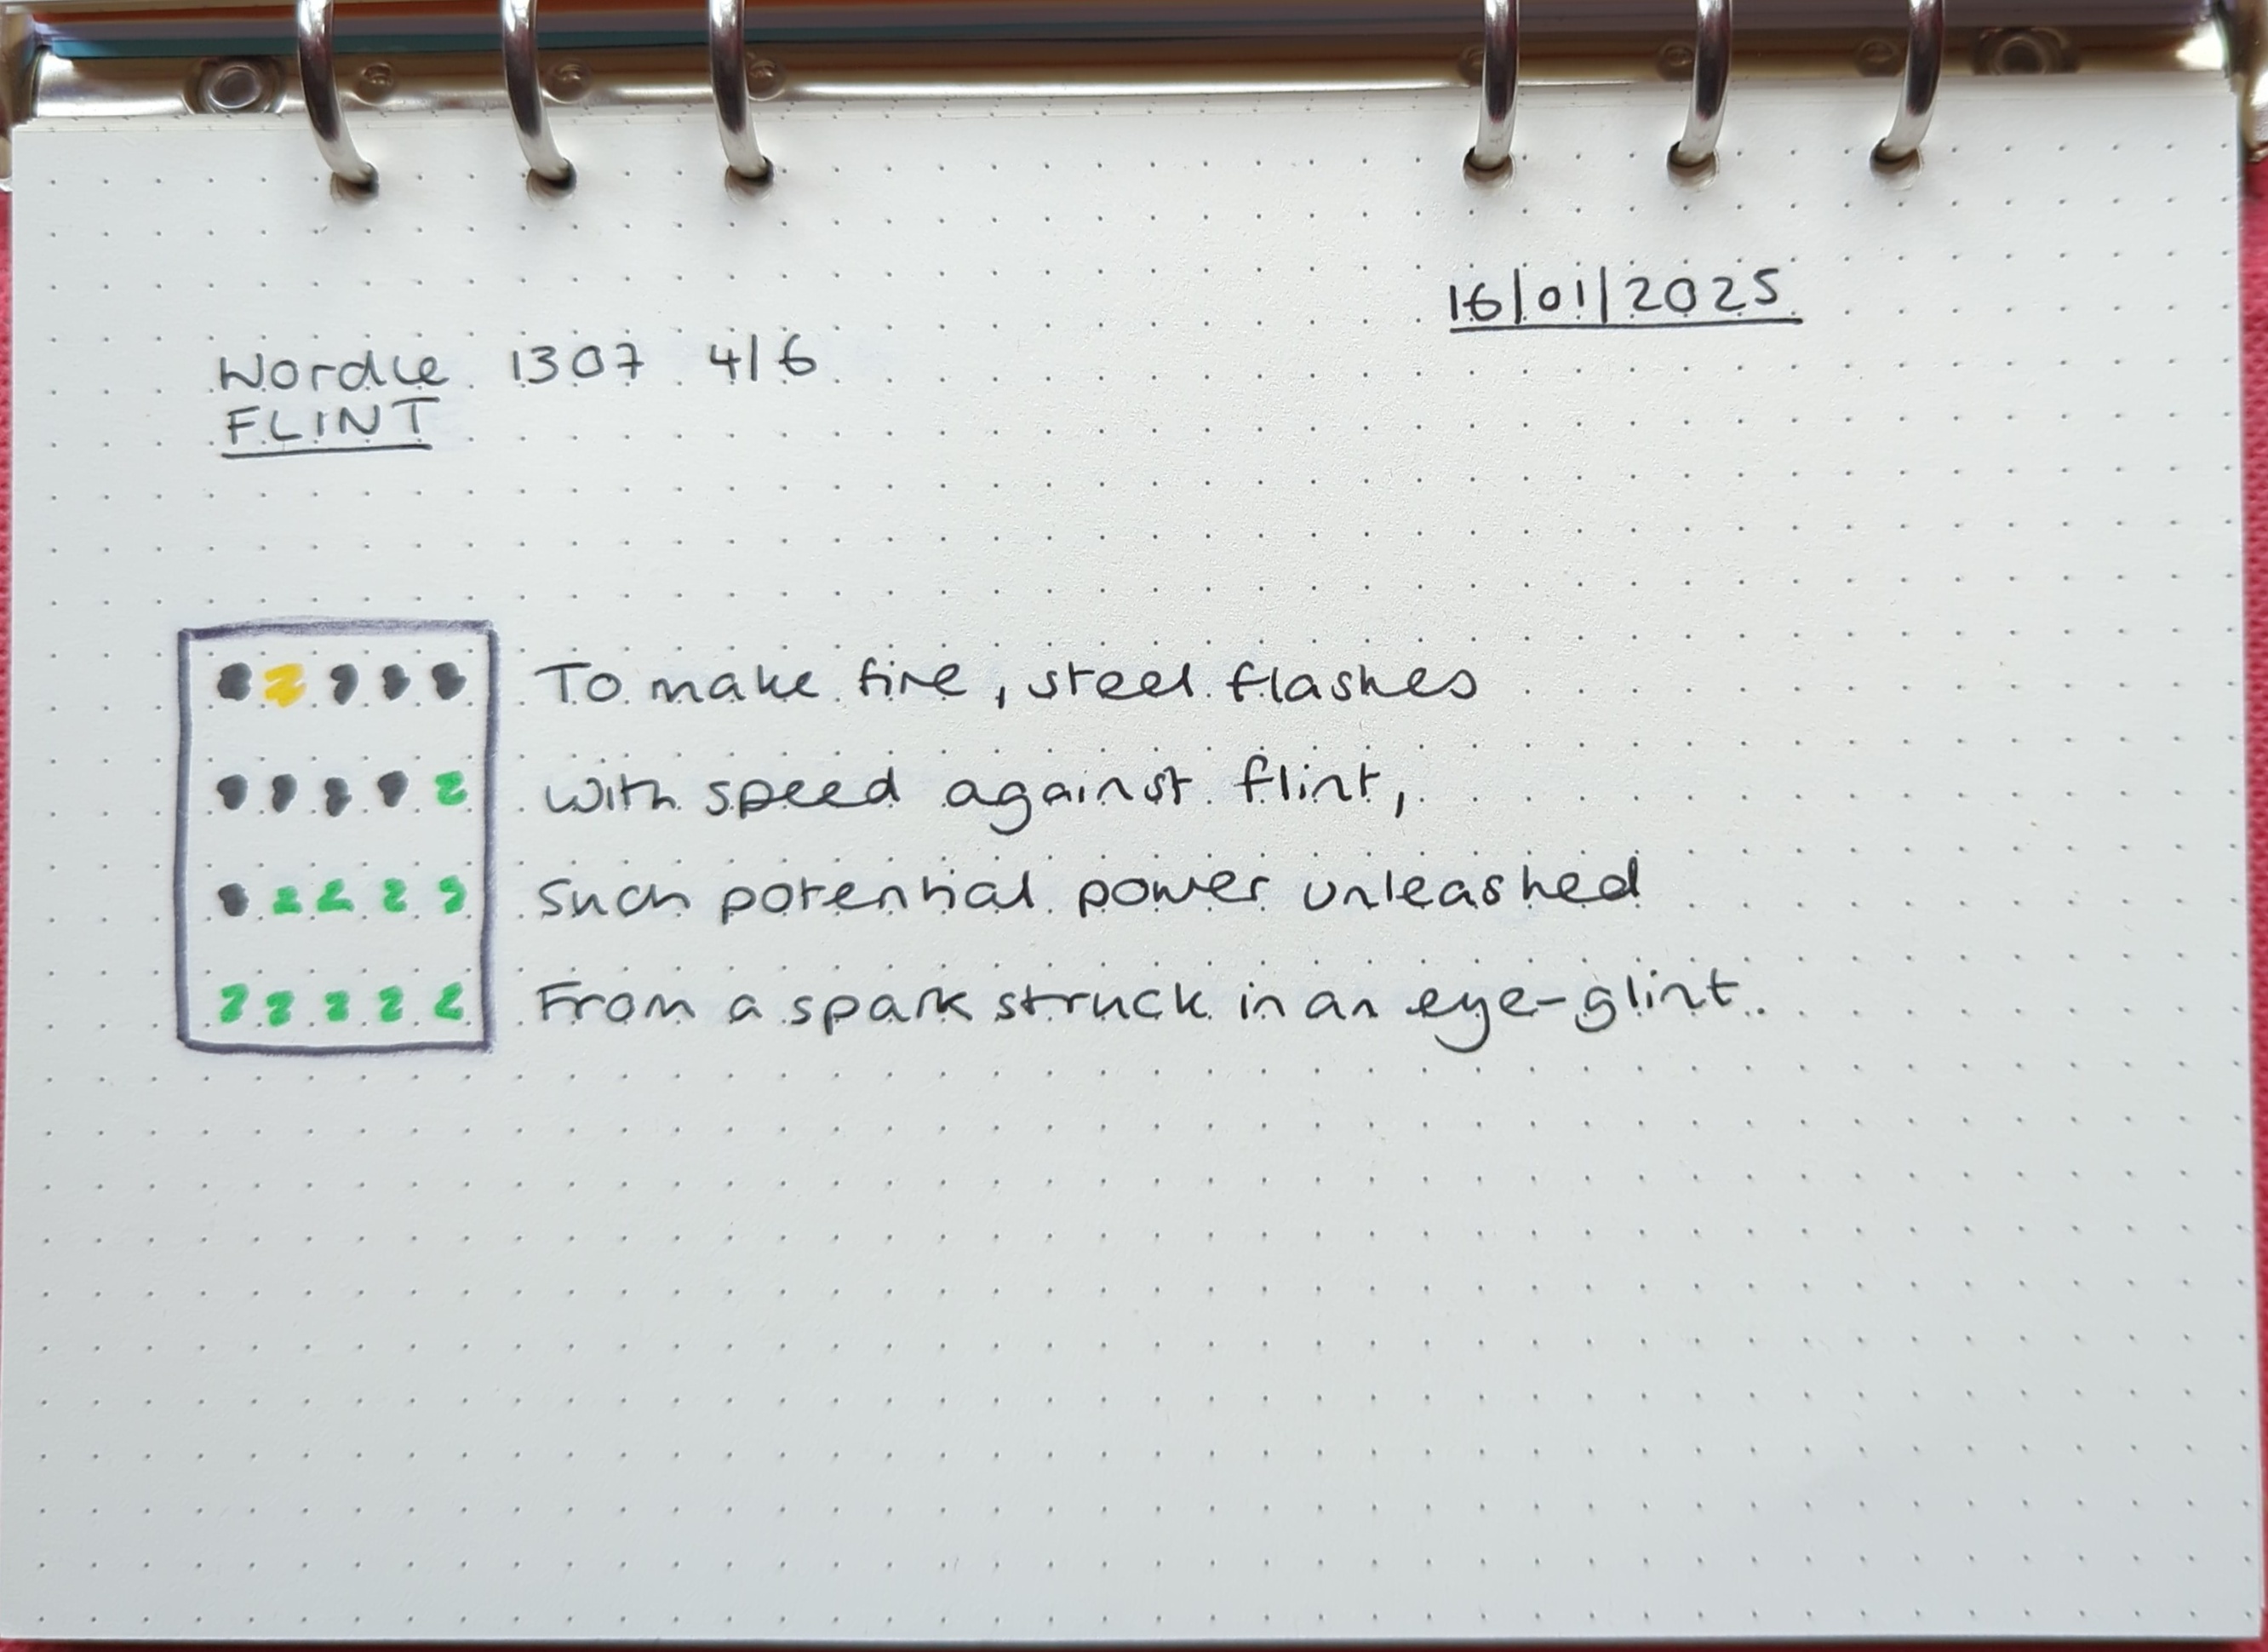 16/01/2025
Wordle 1307 4/6
FLINT
To make fire, steel flashes
with speed against flint,
Such potential power unleashed
From a spark struck in an eye-glint.